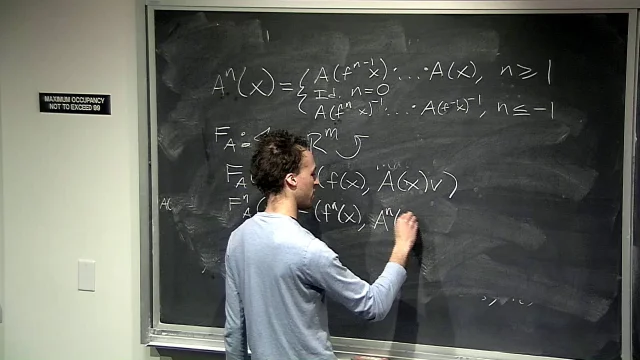 MAXIMUM OCCUPANCY
NOT TO EXCEED 99
Aⁿ(x) = { A(fⁿ⁻¹x)·...·A(x), n ≥ 1
Id. n=0
A(fⁿx)⁻¹ ... A(f⁻¹x)⁻¹, n ≤ -1
F_A : Rᵐ
F_A (f(x), A(x)v)
Fⁿ_A ( (fⁿ(x), Aⁿ(